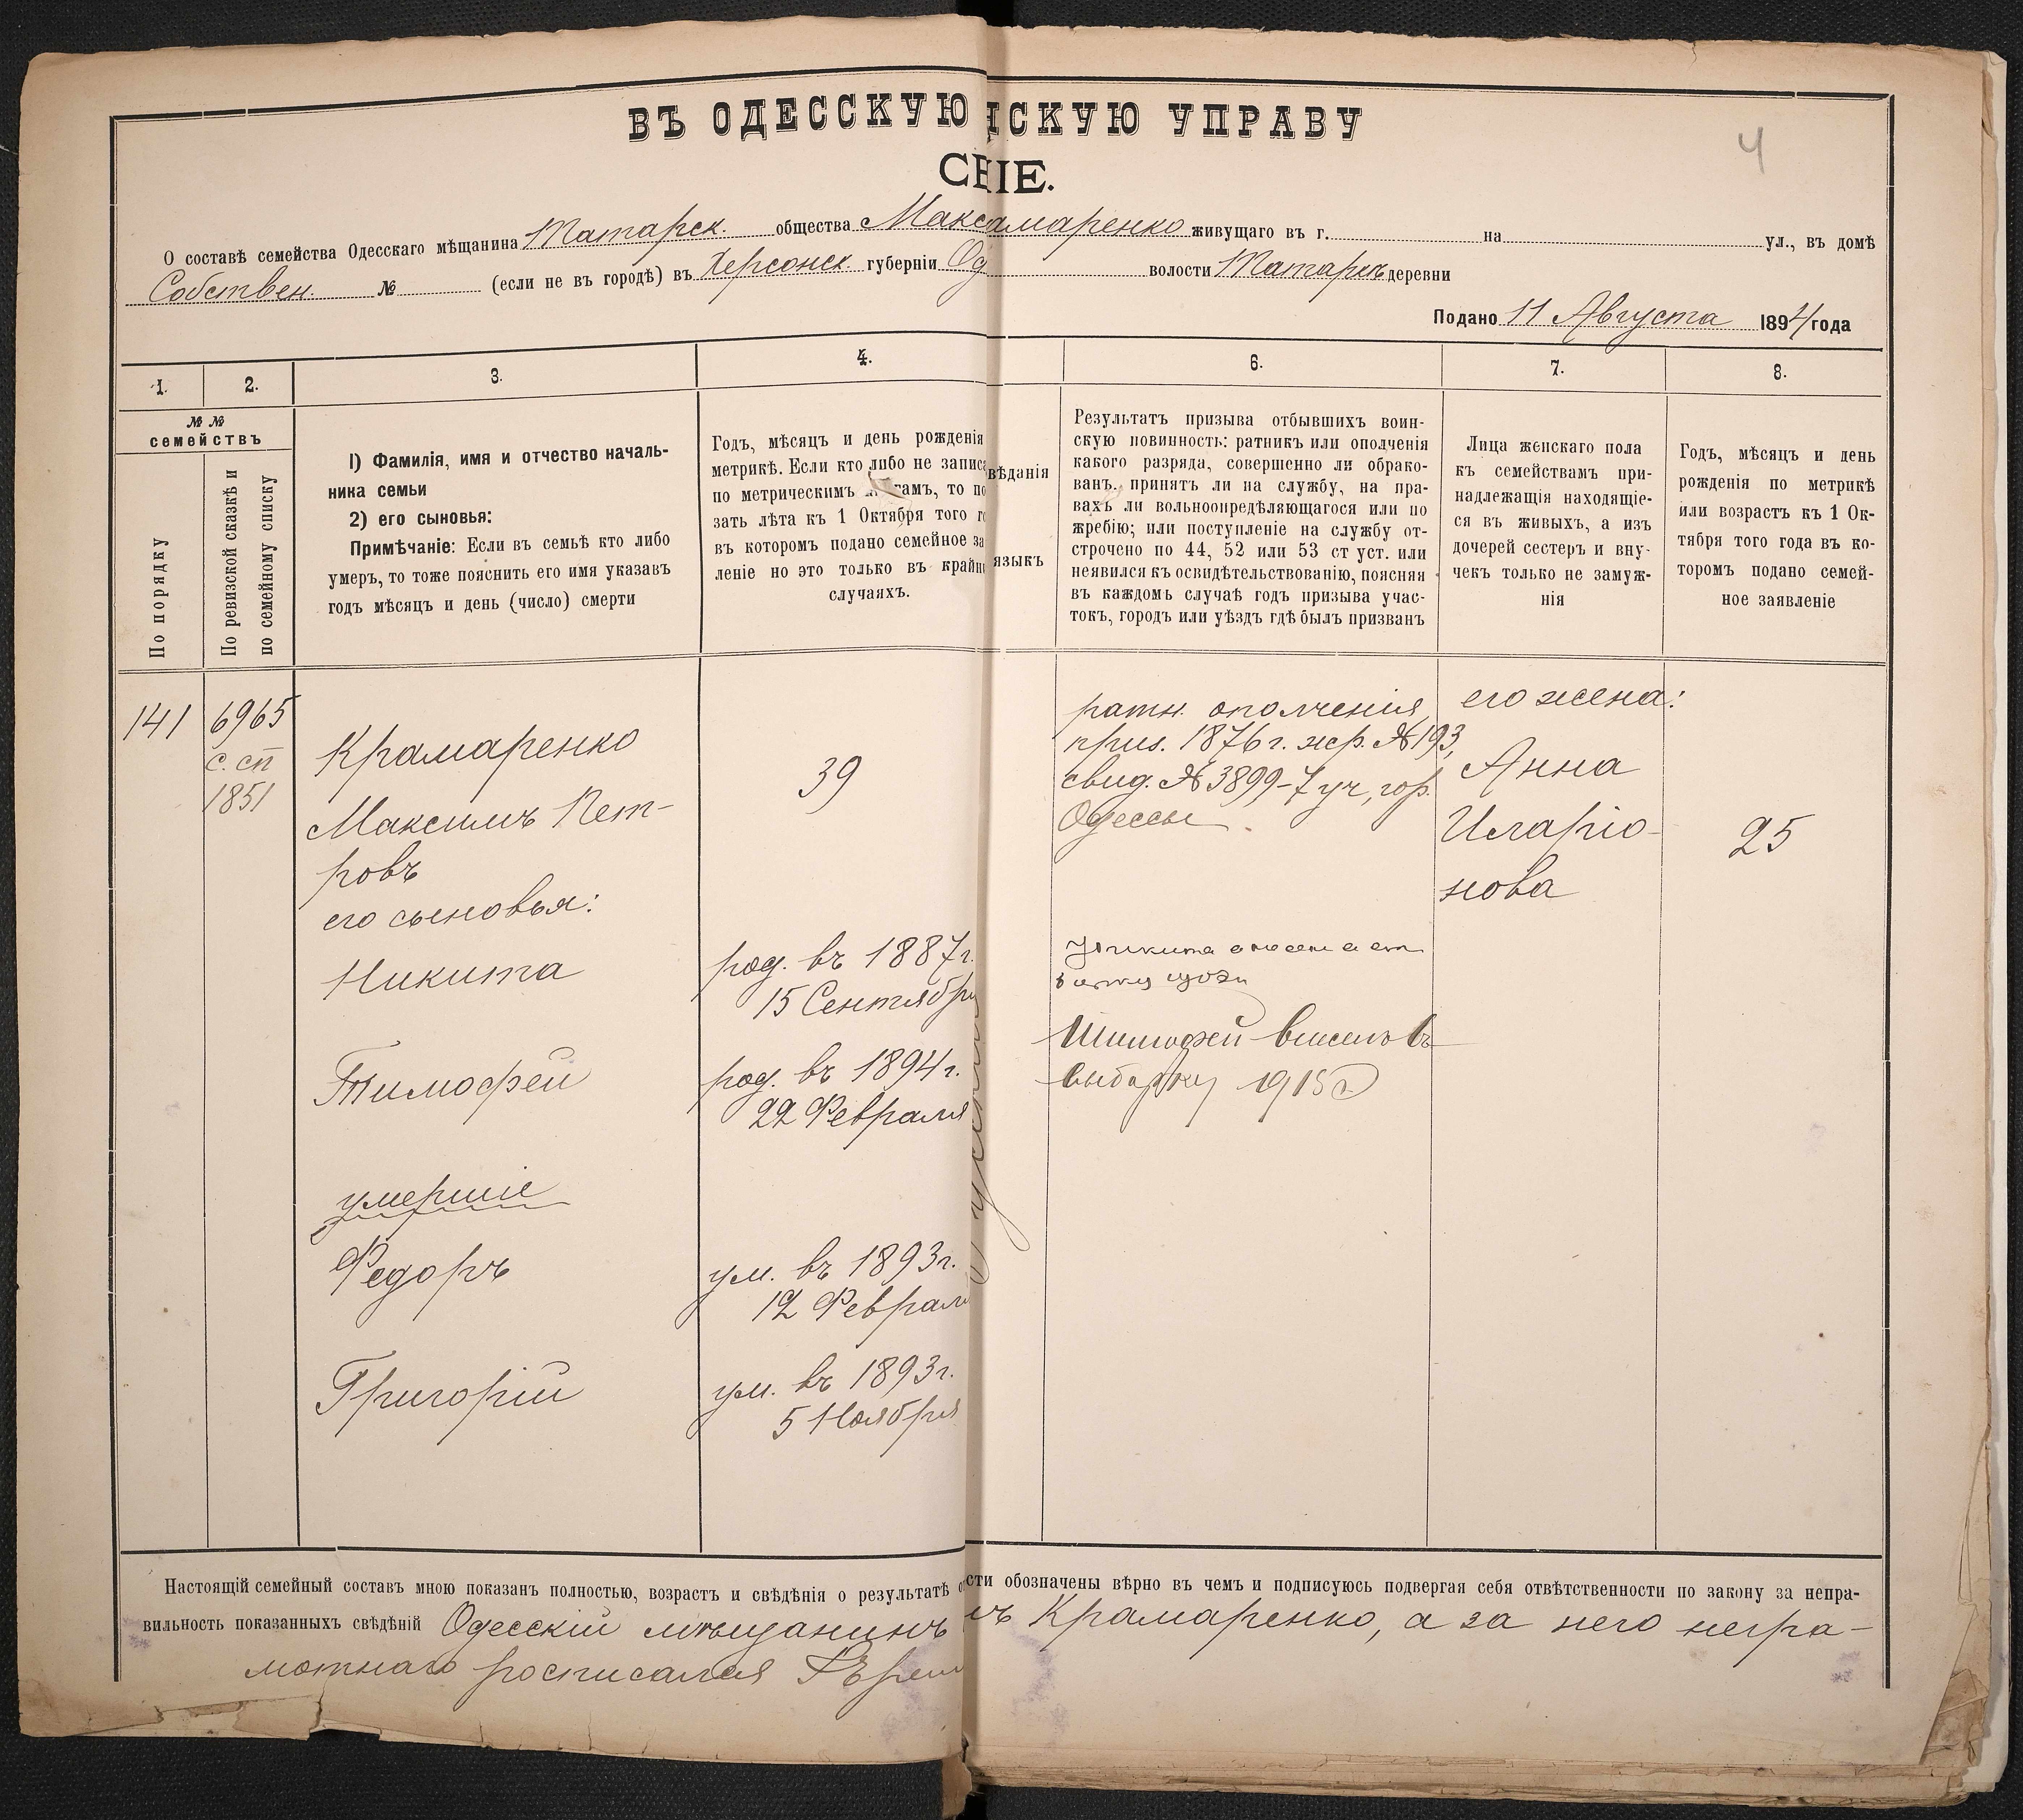 ВЪ ОДЕССКУЮ НСКУЮ УПРАВУ
4
СЕ НІЕ.
О составѣ семейства Одесскаго мѣщанина Татарск. общества Макс амаренко живущаго въ г. на ул., въ домѣ
Собствен. № (если не въ городѣ) въ Херсонск. губерніи Од волости Татарск деревни
Подано 11 Августа 1894 года
1. 2. 3. 4. 6. 7. 8.
№ №
семействъ
По порядку
По ревизской сказкѣ и
по семейному списку
I) Фамилія, имя и отчество началь-
ника семьи
2) его сыновья:
Примѣчаніе: Если въ семьѣ кто либо
умеръ, то тоже пояснить его имя указавъ
годъ мѣсяцъ и день (число) смерти
Годъ, мѣсяцъ и день рожденія
метрикѣ. Если кто либо не записа
по метрическимъ гамъ, то по
зать лѣта къ 1 Октября того г
въ которомъ подано семейное за
леніе но это только въ крайн
случаяхъ.
вѣданія
языкъ
Результатъ призыва отбывшихъ воин-
скую повинность: ратникъ или ополченія
какого разряда, совершенно ли обрако-
ванъ. принятъ ли на службу, на пра-
вахъ ли вольноопредѣляющагося или по
жребію; или поступленіе на службу от-
строчено по 44, 52 или 53 ст уст. или
неявился къ освидѣтельствованію, поясняя
въ каждомъ случаѣ годъ призыва учас-
токъ, городъ или уѣздъ гдѣ былъ призванъ
Лица женскаго пола
къ семействамъ при-
надлежащія находящіе-
ся въ живыхъ, а изъ
дочерей сестеръ и вну-
чекъ только не замуж-
нія
Годъ, мѣсяцъ и день
рожденія по метрикѣ
или возрастъ къ 1 Ок-
тября того года въ ко-
торомъ подано семей-
ное заявленіе
141
6965
с. сп
1851
Крамаренко
Максимъ Пет-
ровъ
его сыновья:
Никита
Тимофей
умершіе
Федоръ
Григорій
39
род. въ 1887 г.
15 Сентября
род. въ 1894 г.
22 Февраля
ум. въ 1893 г.
12 Феврал
ум. въ 1893 г.
5 Ноября
ратн. ополченія
приз. 1876 г. жр. № 193,
свид. № 3899-7 уч, гор.
Одессы
Никита
Тимофей внесенъ въ
выборку 1915 г
его жена:
Анна
Иларіо-
нова
25
Настоящій семейный составъ мною показанъ полностью, возрастъ и свѣдѣнія о результатѣ о сти обозначены вѣрно въ чемъ и подписуюсь подвергая себя отвѣтственности по закону за непра-
вильность показанныхъ свѣдѣній Одесскій мѣщанинъ мъ Крамаренко, а за него негра-
мотнаго росписался